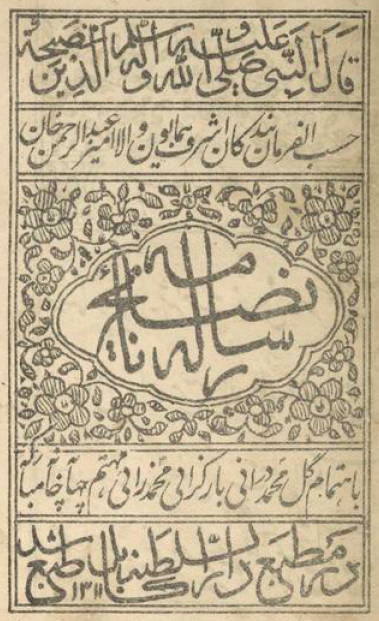 قال النبی صلی الله علیه و آله وسلم الدین نصیحة
حسب الفرمان بندگان اشرف همایون والا امیر عبدالرحمن خان
رساله نصائح نامه
باهتمام گل محمد درانی بارکزائی محمدزائی مهتمم چهاپه خانه مبارکه
در مطبع دارالسلطنه کابل طبع شد ۱۳۱۱